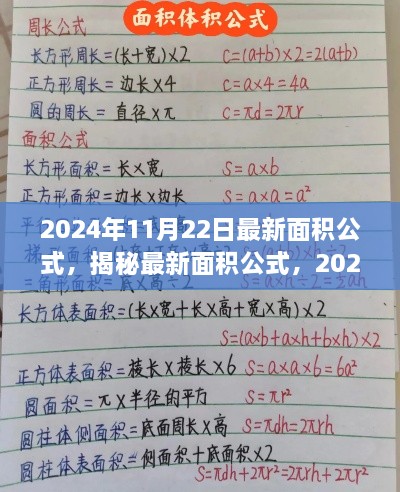 面积体积公式
周长公式
长方形周长=(长+宽)×2 C=(a+b)×2=2(a+b)
正方形周长=边长×4 C=a×4=4a
圆的周长=直径×π C=πd=2πr
面积公式
长方形面积=长×宽 S=a×b
正方形面积=边长×边长 S=a×a=a²
2024年11月22日最新面积公
式，揭秘最新面积公式，202
三角形面积=底×高÷2
长方体表面积=(长×宽+长×高+宽×高)×2
S=(a×b+a×h+b×h)×2
正方体表面积=棱长×棱长×6 S=a×a×6=6a²
圆面积=π×半径的平方 S=πr²
圆柱体侧面积=底面周长×高 S=πdh=2πrh
圆柱体表面积=侧面积+底面积×2
S=πdh+2πr²=2πrh+2πr²